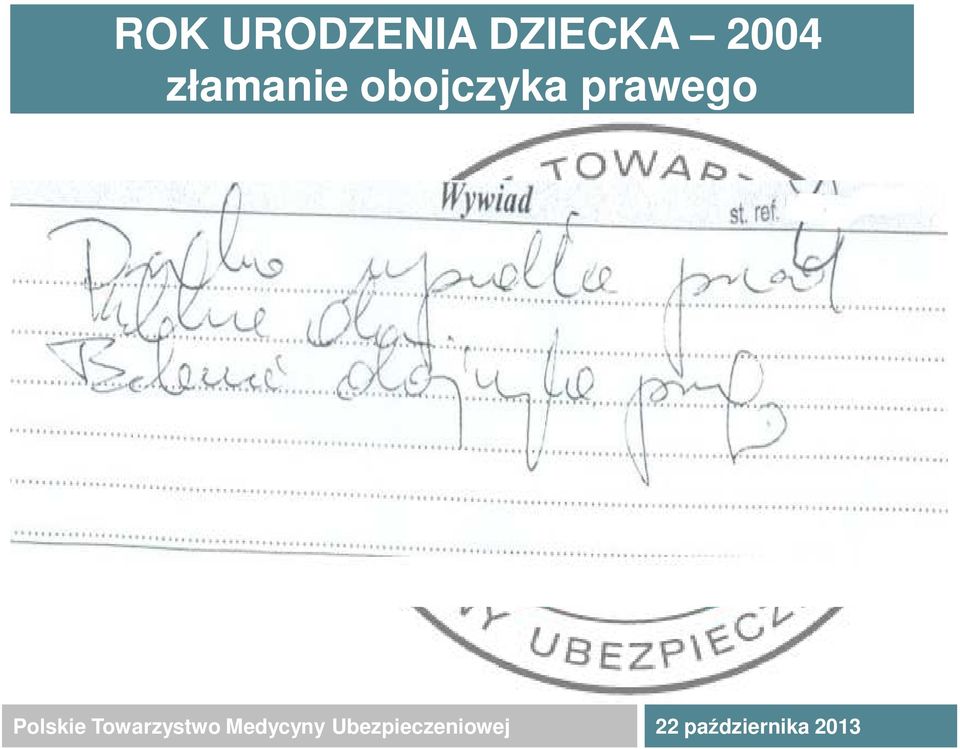 ROK URODZENIA DZIECKA – 2004
złamanie obojczyka prawego
TOWARZ
Wywiad
st. ref.
Dziecko wypadło przed
Bolesność obojczyka
Y UBEZPIECZ
Polskie Towarzystwo Medycyny Ubezpieczeniowej
22 października 2013